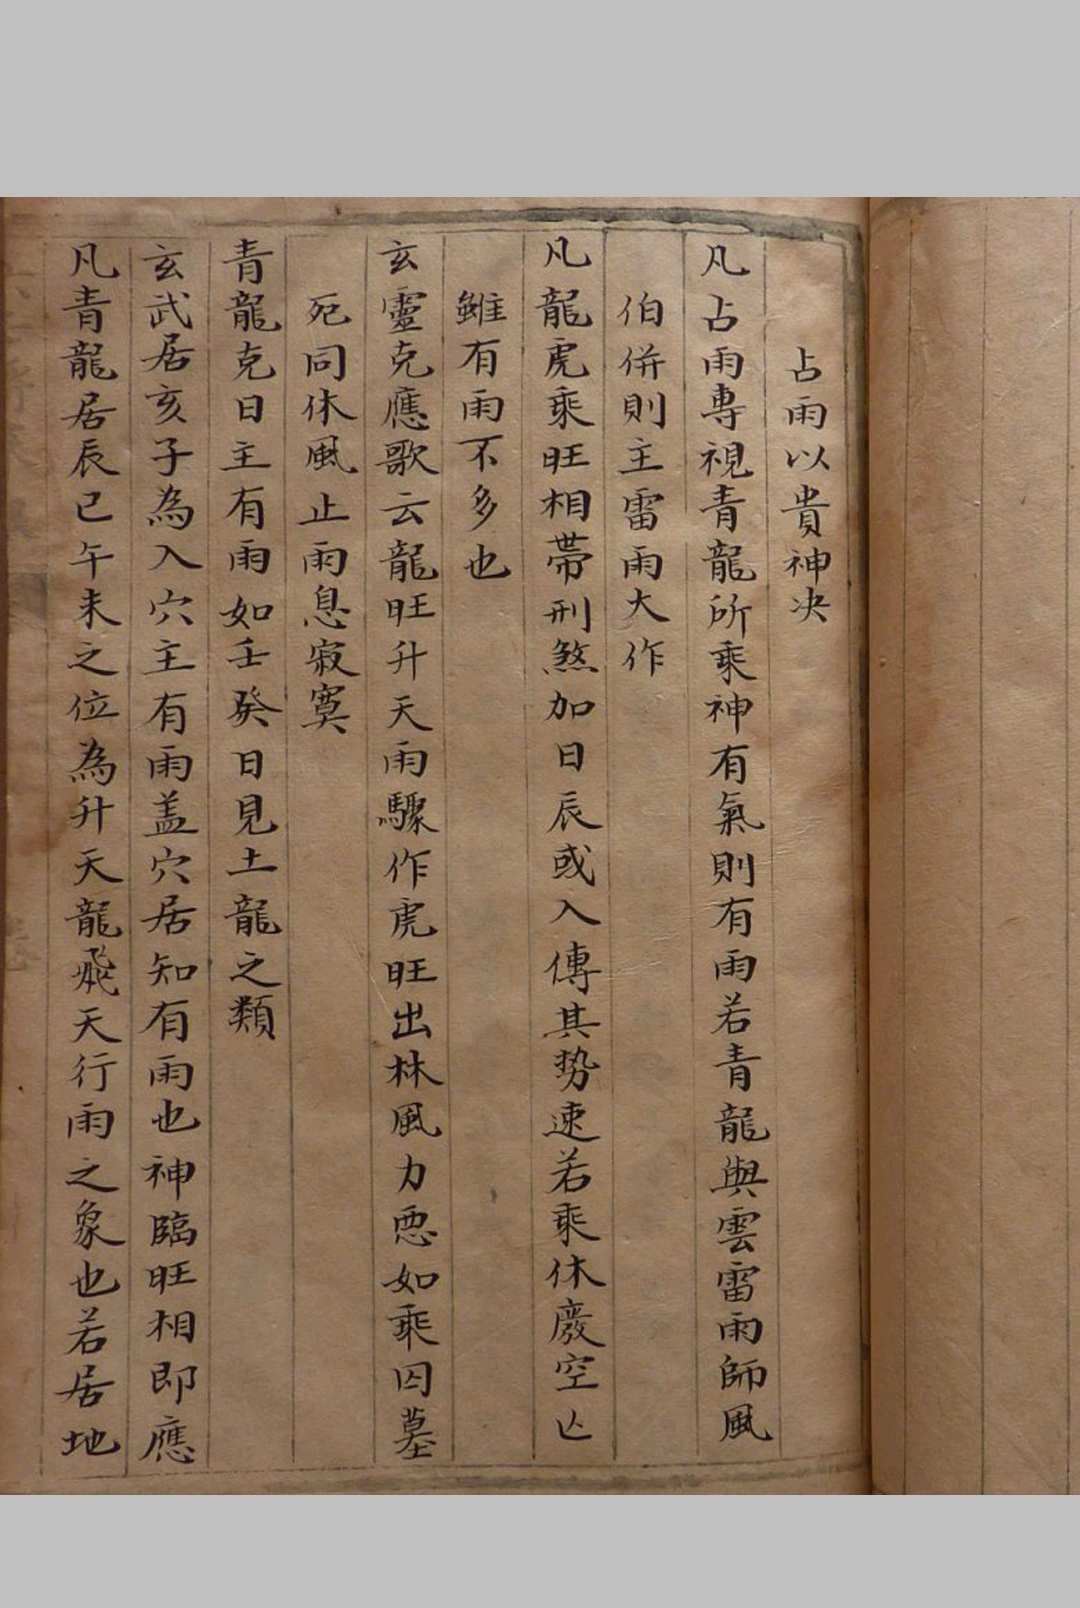 占雨以貴神决
凡占雨專視青龍所乘神有氣則有雨若青龍與雲雷雨師風
伯併則主雷雨大作
凡龍虎乘旺相帶刑煞加日辰或入傳其势速若乘休廢空亾
雖有雨不多也
玄靈克應歌云龍旺升天雨驟作虎旺出林風力惡如乘囚墓
死同休風止雨息寂寞
青龍克日主有雨如壬癸日見土龍之類
玄武居亥子為入穴主有雨盖穴居知有雨也神臨旺相即應
凡青龍居辰巳午未之位為升天龍飛天行雨之象也若居地